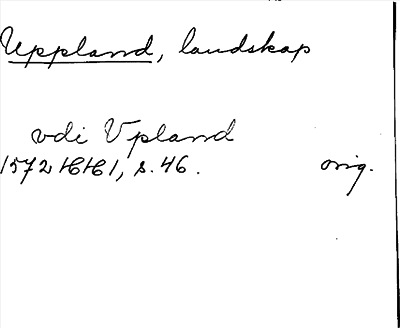 Uppland, landskap
vdi Vpland
1572 HH 1, s. 46. orig.